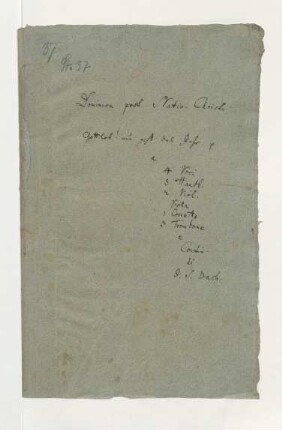 5/
No 37
Dominica post Nativ. Christi.
Gottlob! nun geht das Jahr p
a
4 Voci
3 Hautb.
2 Viol.
Viola
1 Cornetto
3 Trombone
e
Contin:
di
J. S. Bach.